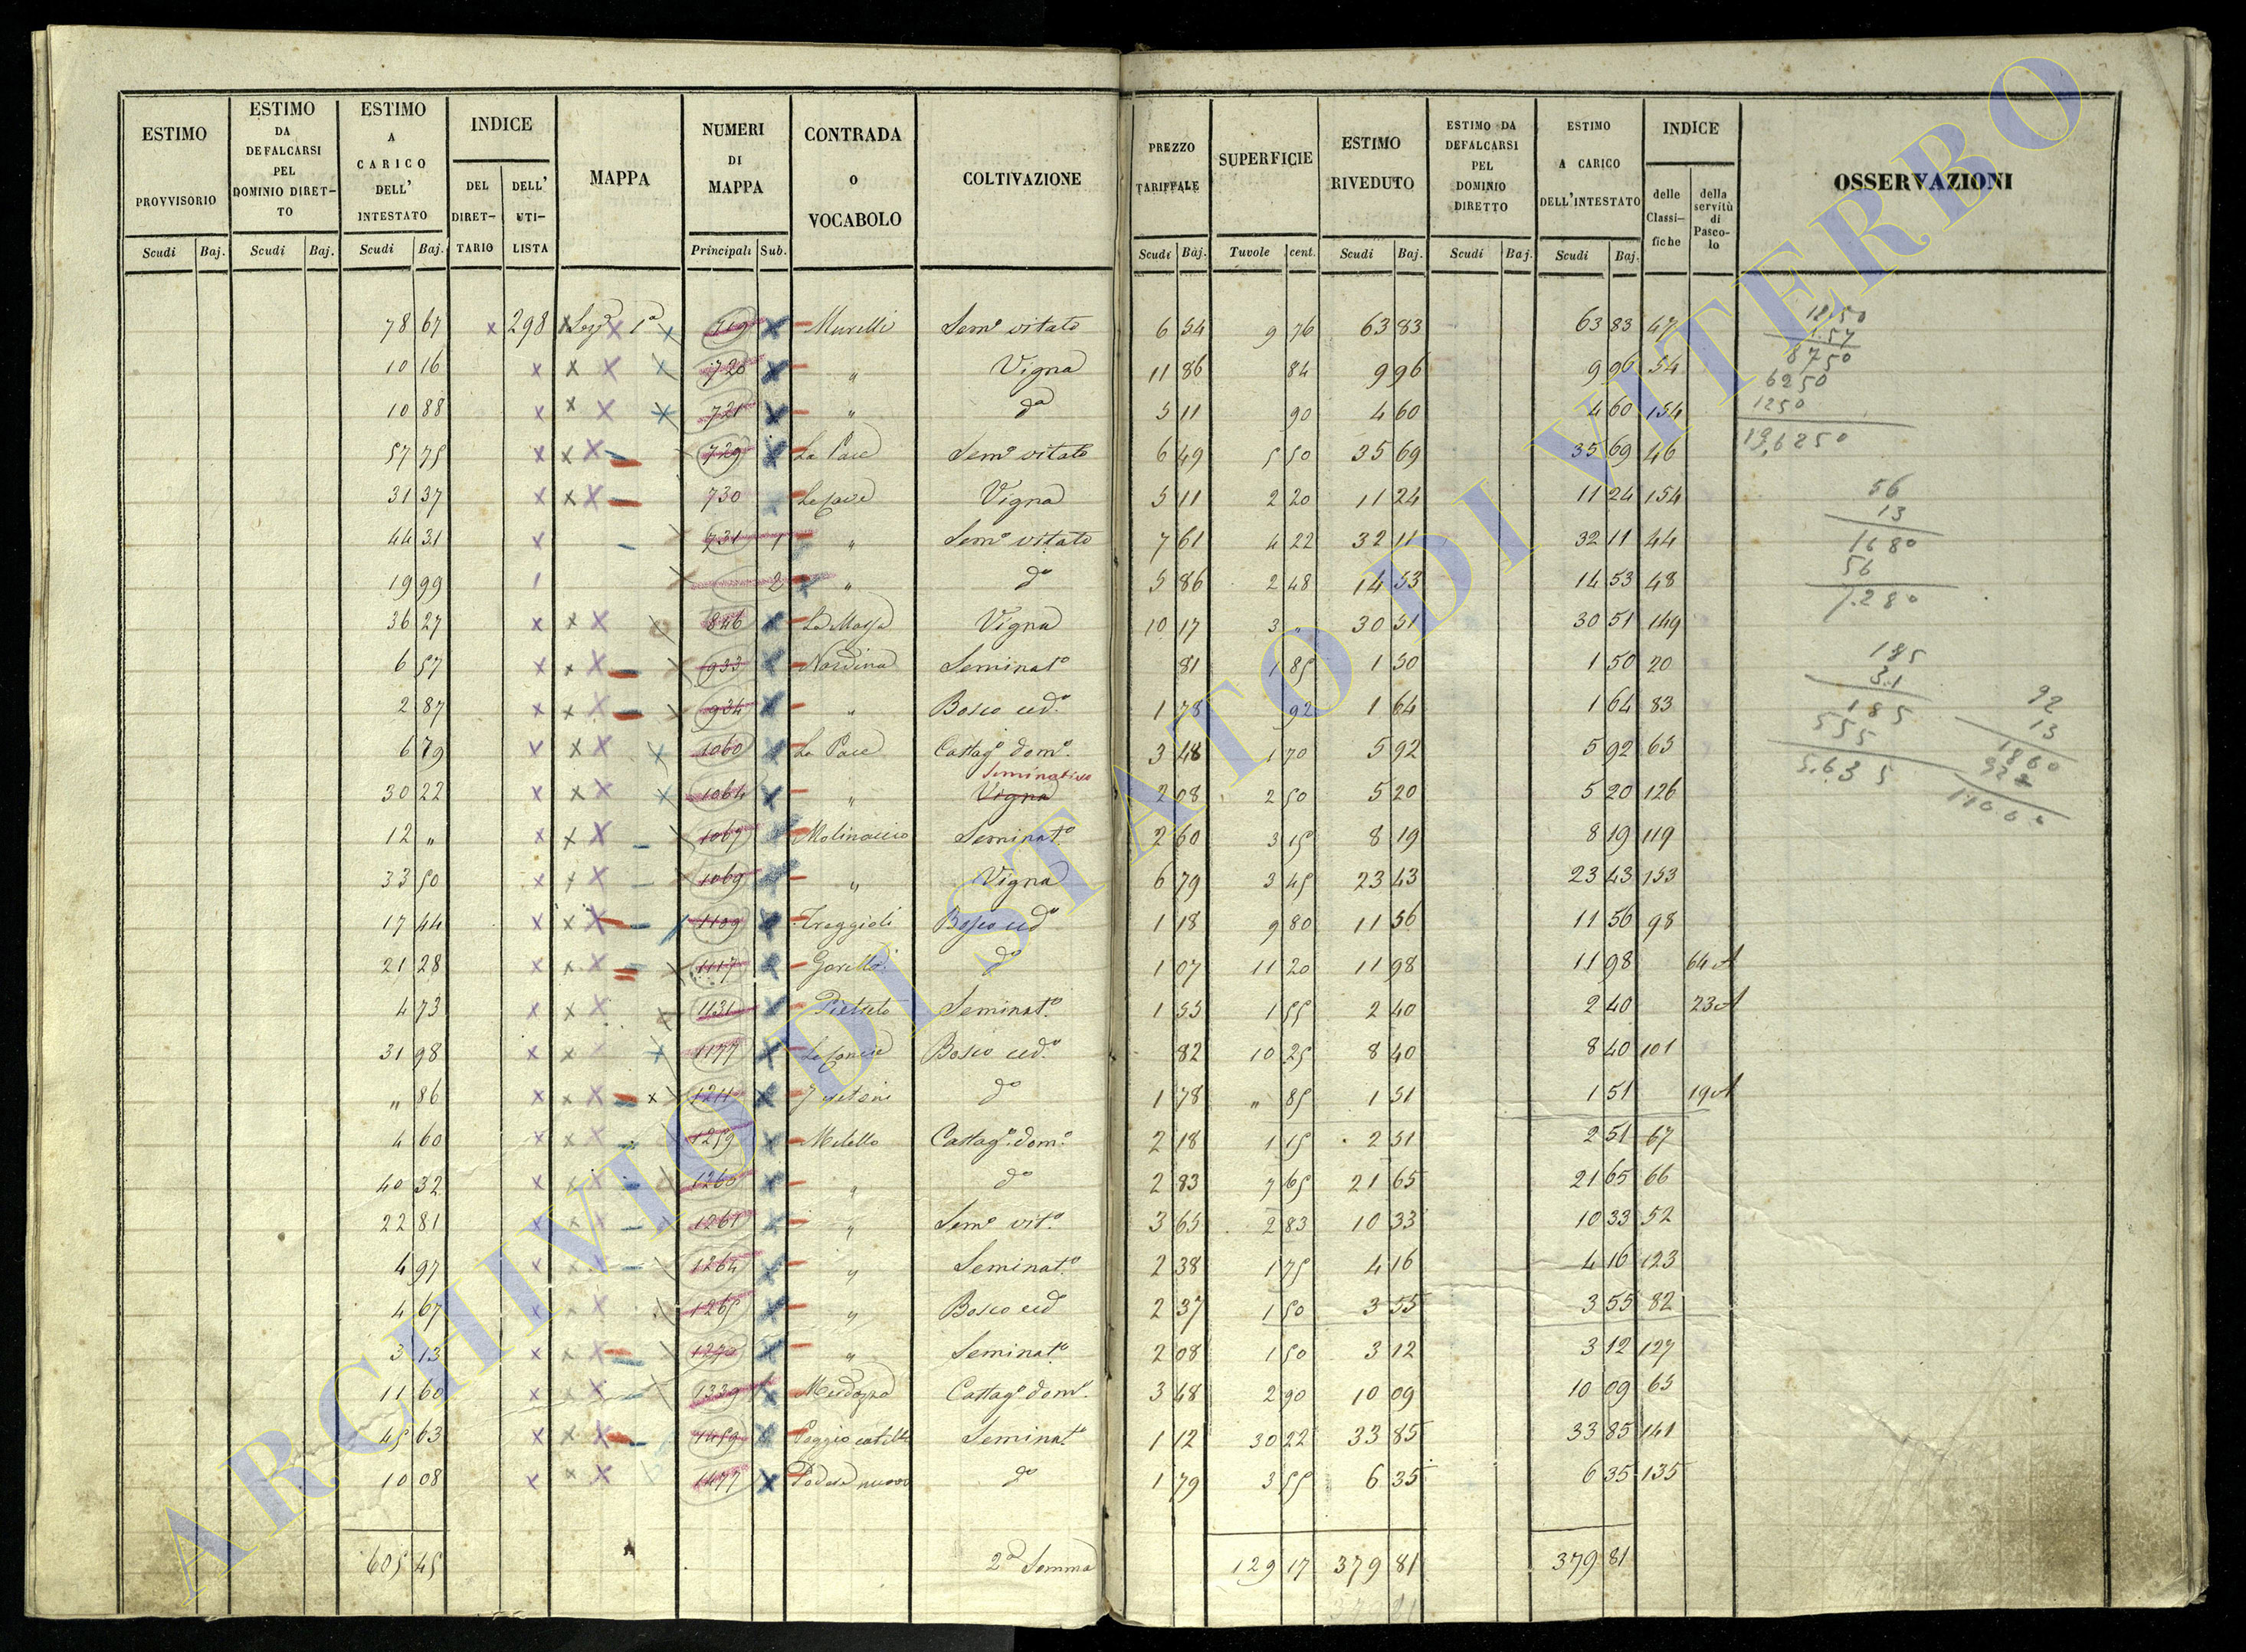 ESTIMO PROVVISORIO Scudi Baj.
ESTIMO DA DEFALCARSI PEL DOMINIO DIRET-TO Scudi Baj.
ESTIMO A CARICO DELL' INTESTATO Scudi Baj.
INDICE DEL DIRET-TARIO DELL' UTI-LISTA
MAPPA
NUMERI DI MAPPA Principali Sub.
CONTRADA o VOCABOLO
COLTIVAZIONE
PREZZO TARIFFALE Scudi Baj.
SUPERFICIE Tavole cent.
ESTIMO RIVEDUTO Scudi Baj.
ESTIMO DA DEFALCARSI PEL DOMINIO DIRETTO Scudi Baj.
ESTIMO A CARICO DELL'INTESTATO Scudi Baj.
INDICE delle Classi-fiche della servitù di Pasco-lo
OSSERVAZIONI
78 67 298 1ª 719 Murelli Semº vitato 6 54 9 76 63 83 63 83 47
10 16 720 " Vigna 11 86 84 9 96 9 96 54
10 88 721 " dª 5 11 90 4 60 4 60 154
57 75 729 La Pace Semº vitato 6 49 5 50 35 69 35 69 46
31 37 730 Vigna 5 11 2 20 11 24 11 24 154
44 31 731 1 " Semº vitato 7 61 4 22 32 11 32 11 44
19 99 2 " dº 5 86 2 48 14 53 14 53 48
36 27 846 La Massa Vigna 10 17 3 " 30 51 30 51 149
6 57 933 Nardina Seminatº 81 1 85 1 50 1 50 20
2 87 934 " Bosco cedº 1 78 92 1 64 1 64 83
6 79 1060 La Pace Castagº domº 3 48 1 70 5 92 5 92 65
30 22 1064 " Vigna Seminativo 2 08 2 50 5 20 5 20 126
12 " 1067 Molinaccio Seminatº 2 60 3 15 8 19 8 19 119
33 50 1069 " Vigna 6 79 3 45 23 43 23 43 153
17 44 1109 Bosco cedº 1 18 9 80 11 56 11 56 98
21 28 1117 dº 1 07 11 20 11 98 11 98 64 A
4 73 1131 Pietreto Seminatº 1 55 1 55 2 40 2 40 23 A
31 98 1177 Bosco cedº 82 10 25 8 40 8 40 101
" 86 1211 dº 1 78 " 85 1 51 1 51 19 A
4 60 1259 Melello Castagº domº 2 18 1 15 2 51 2 51 67
40 32 1260 " dº 2 83 7 65 21 65 21 65 66
22 81 1261 " Semº vitº 3 65 2 83 10 33 10 33 52
4 97 1264 " Seminatº 2 38 1 75 4 16 4 16 123
4 67 1265 " Bosco ced 2 37 1 50 3 55 3 55 82
3 13 1270 " Seminatº 2 08 1 50 3 12 3 12 127
11 60 1339 Castagº domº 3 48 2 90 10 09 10 09 65
45 63 1459 Seminatº 1 12 30 22 33 85 33 85 141
10 08 1477 Podere nuovo dº 1 79 3 55 6 35 6 35 135
605 45 2ª Somma 129 17 379 81 379 81
8750
6250
1250
19,6250
56
13
1680
56
7.280
185
31
185
555
5.635
92
13
ARCHIVIO DI STATO DI VITERBO